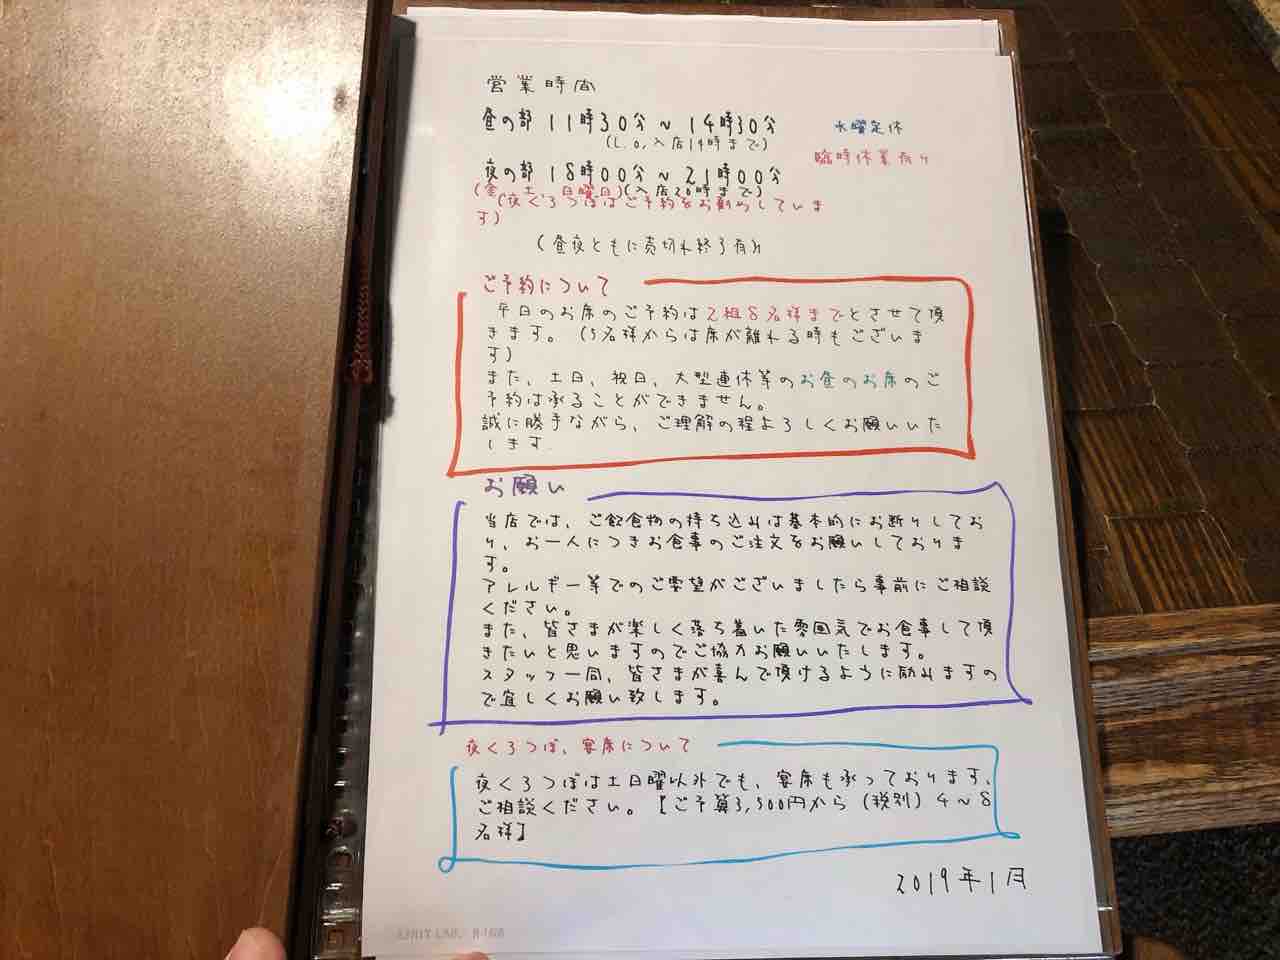 営業時間
昼の部 11時30分 ~ 14時30分
水曜定休
(L.O,入店14時まで)
臨時休業有り
夜の部 18時00分 ~ 21時00分
(金、土、日曜日)(入店20時まで)
(夜くろつぼはご予約をお勧めしていま
す)
(昼夜ともに売切れ終了有り
ご予約について
平日のお席のご予約は2組8名様までとさせて頂
きます。(5名様からは席が離れる時もございま
す)
また、土日、祝日、大型連休等のお昼のお席のご
予約は承ることができません。
誠に勝手ながら、ご理解の程よろしくお願いいた
します.
お願い
当店では、ご飲食物の持ち込みは基本的にお断りしてお
り、お一人につきお食事のご注文をお願いしておりま
す。
アレルギー等でのご要望がございましたら事前にご相談
ください。
また、皆さまが楽しく落ち着いた雰囲気でお食事して頂
きたいと思いますのでご協力お願いいたします。
スタッフ一同、皆さまが喜んで頂けるように励みますの
で宜しくお願い致します。
夜くろつぼ、宴席について
夜くろつぼは土日曜以外でも、宴席も承っております、
ご相談ください。【ご予算3,500円から(税別)4~8
名様】
2019年1月